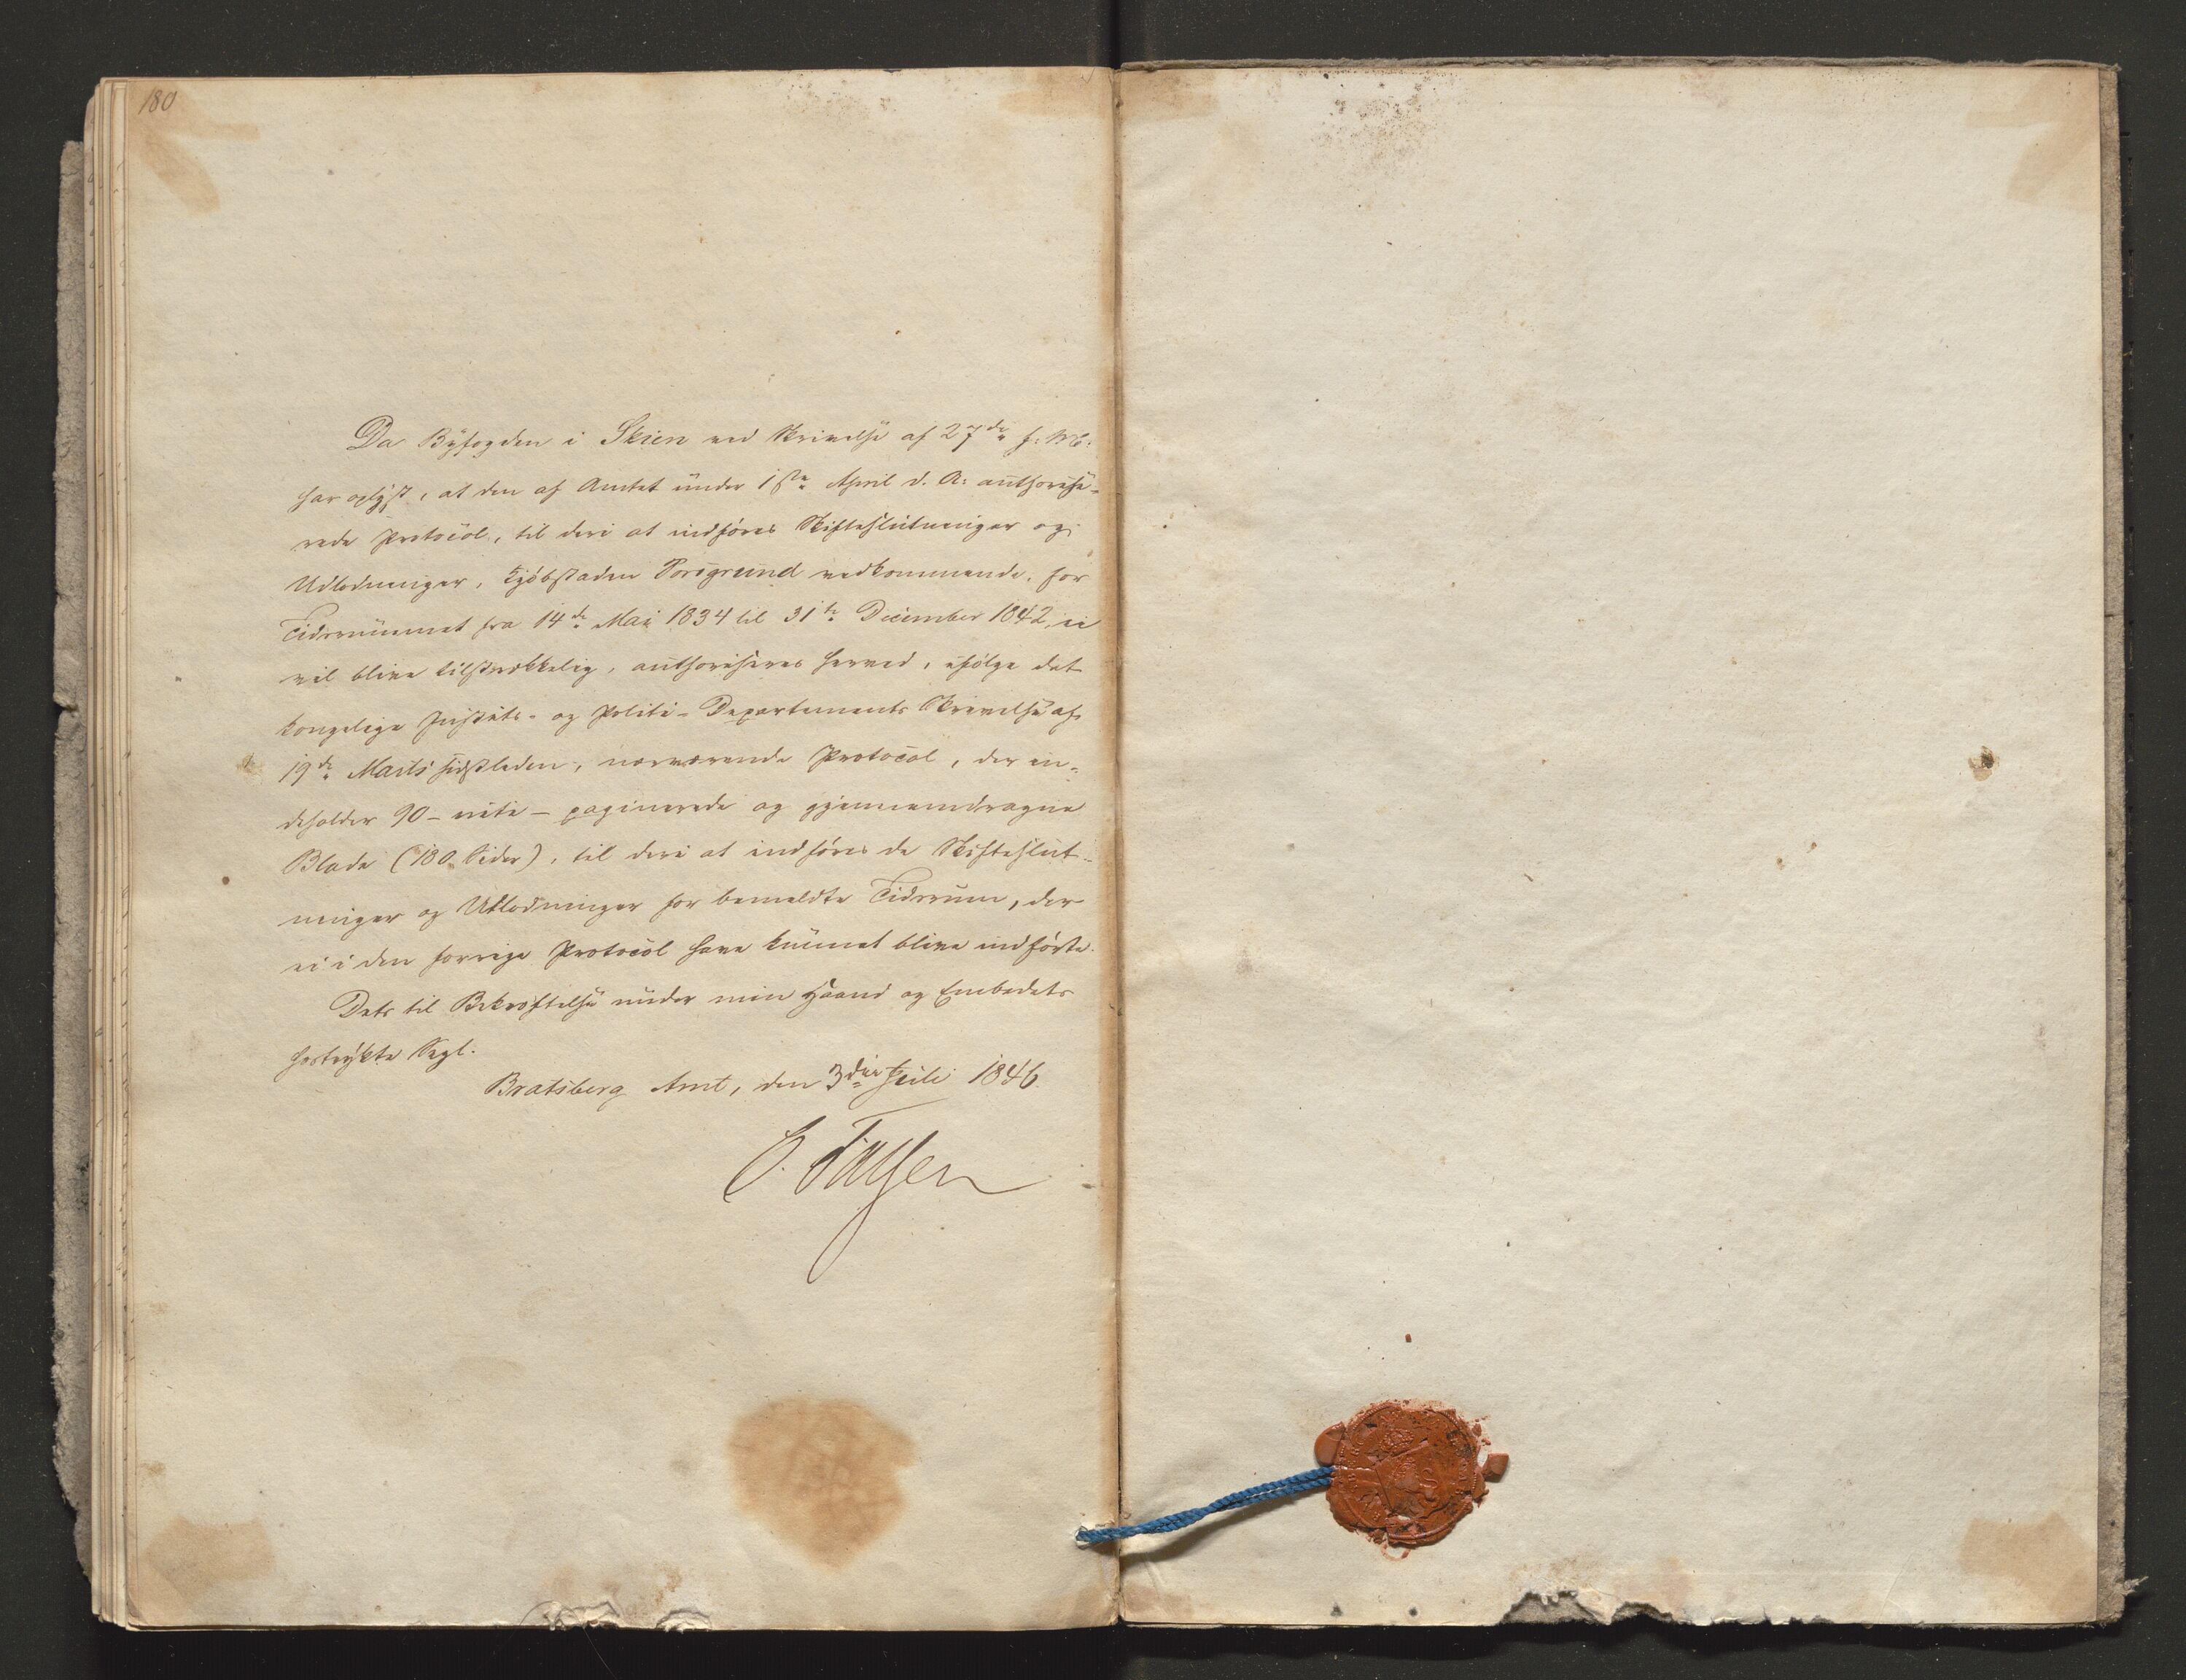 180
Da Byfogden i Skien ved Skrivelse af 27de f: M:
har oplyst, at den af Amtet under 1ste April d. A: authorise-
rede Protocol, til deri at indføres Skifteslutninger og
Udlodninger, Kjøbstaden Porsgrund vedkommende, for
Tidsrummet fra 14de Mai 1834 til 31te December 1842, ei
vil blive tilstrækkelig, authoriseres herved, ifølge det
Kongelige Justits- og Politi-Departements Skrivelse af
19de Marts sidstleden, nærværende Protocol, der in-
deholder 90 - niti - paginerede og gjennemdragne
Blade (180 Sider), til deri at indføres de Skifteslut-
ninger og Udlodninger for bemeldte Tidsrum, der
ei i den forrige Protocol have kunnet blive indførte.
Dets til Bekræftelse under min Haand og Embedets
hostrykte Segl.
Bratsberg Amt, den 3die Juli 1846.